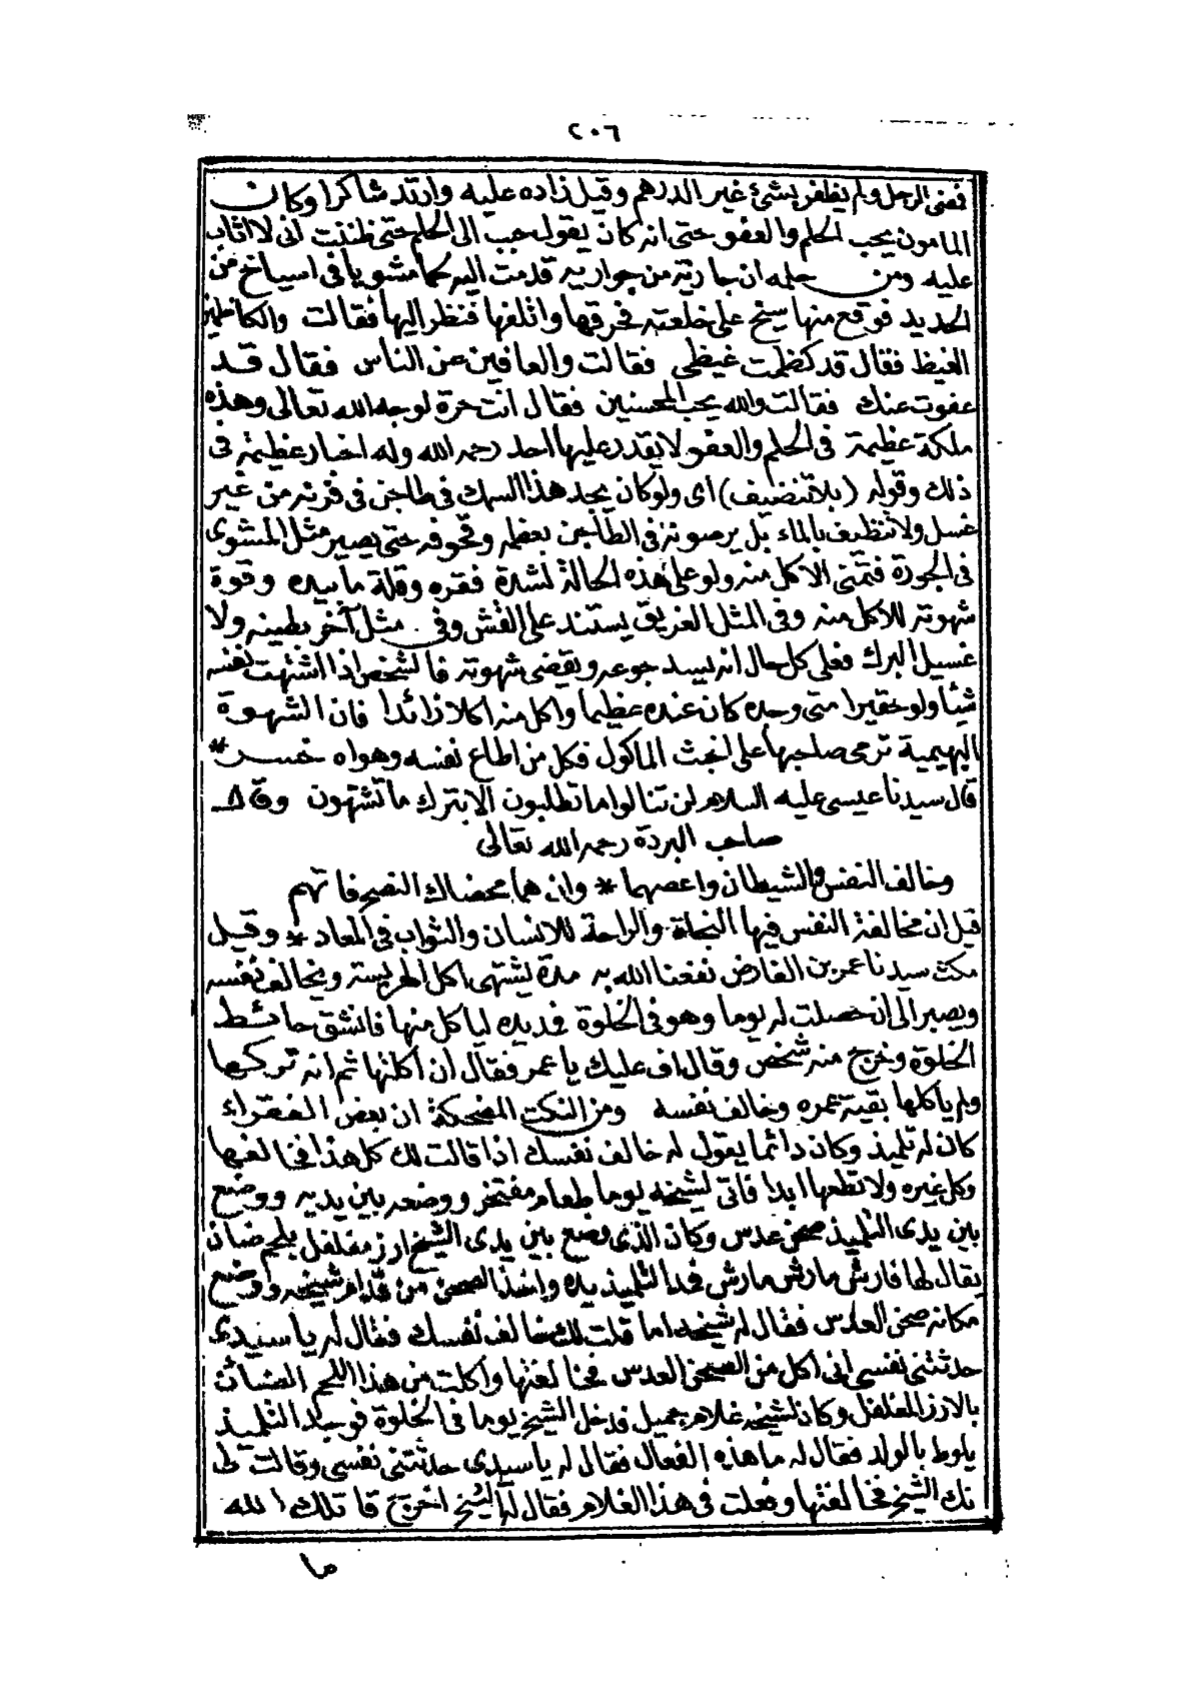 ٢٠٦
فمضى الرجل ولم يظفر بشئ غير الدرهم وقيل زاده عليه وارتد شاكرا وكان
المامون يحب الحلم والعفو حتى انه كان يقول حبب الى الحلم حتى ظننت انى لا اثاب
عليه ومن حلمه ان جارية من جواريه قدمت اليه لحما مشويا فى اسياخ من
الحديد فوقع منها سيخ على خلعته فحرقها واتلفها فنظر اليها فقالت والكاظمين
الغيظ فقال قد كظمت غيظى فقالت والعافين عن الناس فقال قد
عفوت عنك فقالت والله يحب المحسنين فقال انت حرة لوجه الله تعالى وهذه
ملكة عظيمة فى الحلم والعفو لا يقدر عليها احد رحمه الله وله اخبار عظيمة فى
ذلك وقوله (بلا تنضيف) اى ولو كان يجد هذا السمك فى طاجن فى فرنه من غير
غسل ولا تنظيف بالماء بل يرصونه فى الطاجن بعظمه وقحوفه حتى يصير مثل المشوى
فى الجودة فتمنى الاكل منه ولو على هذه الحالة لشدة فقره وقلة ما بيده وقوة
شهوته للاكل منه وفى المثل الغريق يستند على القش وفى مثل آخر بطينه ولا
غسيل البرك فعلى كل حال انه ليسد جوعه ويقضى شهوته فالشخص اذا اشتهت نفسه
شيئا ولو حقيرا متى وجده كان عنده عظيما واكل منه اكلا زائدا فان الشهوة
البهيمية ترمى صاحبها على اخبث الماكول فكل من اطاع نفسه وهواه خسر *
قال سيدنا عيسى عليه السلام لن تنالوا ما تطلبون الا بترك ما تشتهون وقال
صاحب البردة رحمه الله تعالى
وخالف النفس والشيطان واعصهما * وان هما محضاك النصح فاتهم
قيل ان مخالفة النفس فيها النجاة والراحة للانسان والثواب فى المعاد * وقيل
مكث سيدنا عمر بن الفارض نفعنا الله به مدة يشتهى اكل الهريسة ويخالف نفسه
ويصبر الى ان حصلت له يوما وهو فى الخلوة فمد يده لياكل منها فانشق حائط
الخلوة وخرج منه شخص وقال اف عليك يا عمر فقال ان اكلتها ثم انه تركها
ولم ياكلها بقية عمره وخالف نفسه ومن النكت المضحكة ان بعض الفقراء
كان له تلميذ وكان دائما يقول له خالف نفسك اذا قالت لك كل هذا فخالفها
وكل غيره ولا تطعها ابدا فاتى لشيخه يوما طعام مفتخر ووضعه بين يديه ووضع
بين يدى التلميذ صحن عدس وكان الذى وضع بين يدى الشيخ ارز مفلفل بلحم ضان
يقال لها فارش مارش فمد التلميذ يده واخذ الصحن من قدام شيخه ووضع
مكانه صحن العدس فقال له شيخه اما قلت لك خالف نفسك فقال له يا سيدى
حدثتنى نفسى انى اكل من الصحن العدس فخالفتها واكلت من هذا اللحم الضان
بالارز المفلفل وكان لشيخه غلام جميل فدخل الشيخ يوما فى الخلوة فوجد التلميذ
يلوط بالولد فقال له ما هذه الفعال فقال له يا سيدى حدثتنى نفسى وقالت لى
نك الشيخ فخالفتها وفعلت فى هذا الغلام فقال له الشيخ اخرج قاتلك الله
ما